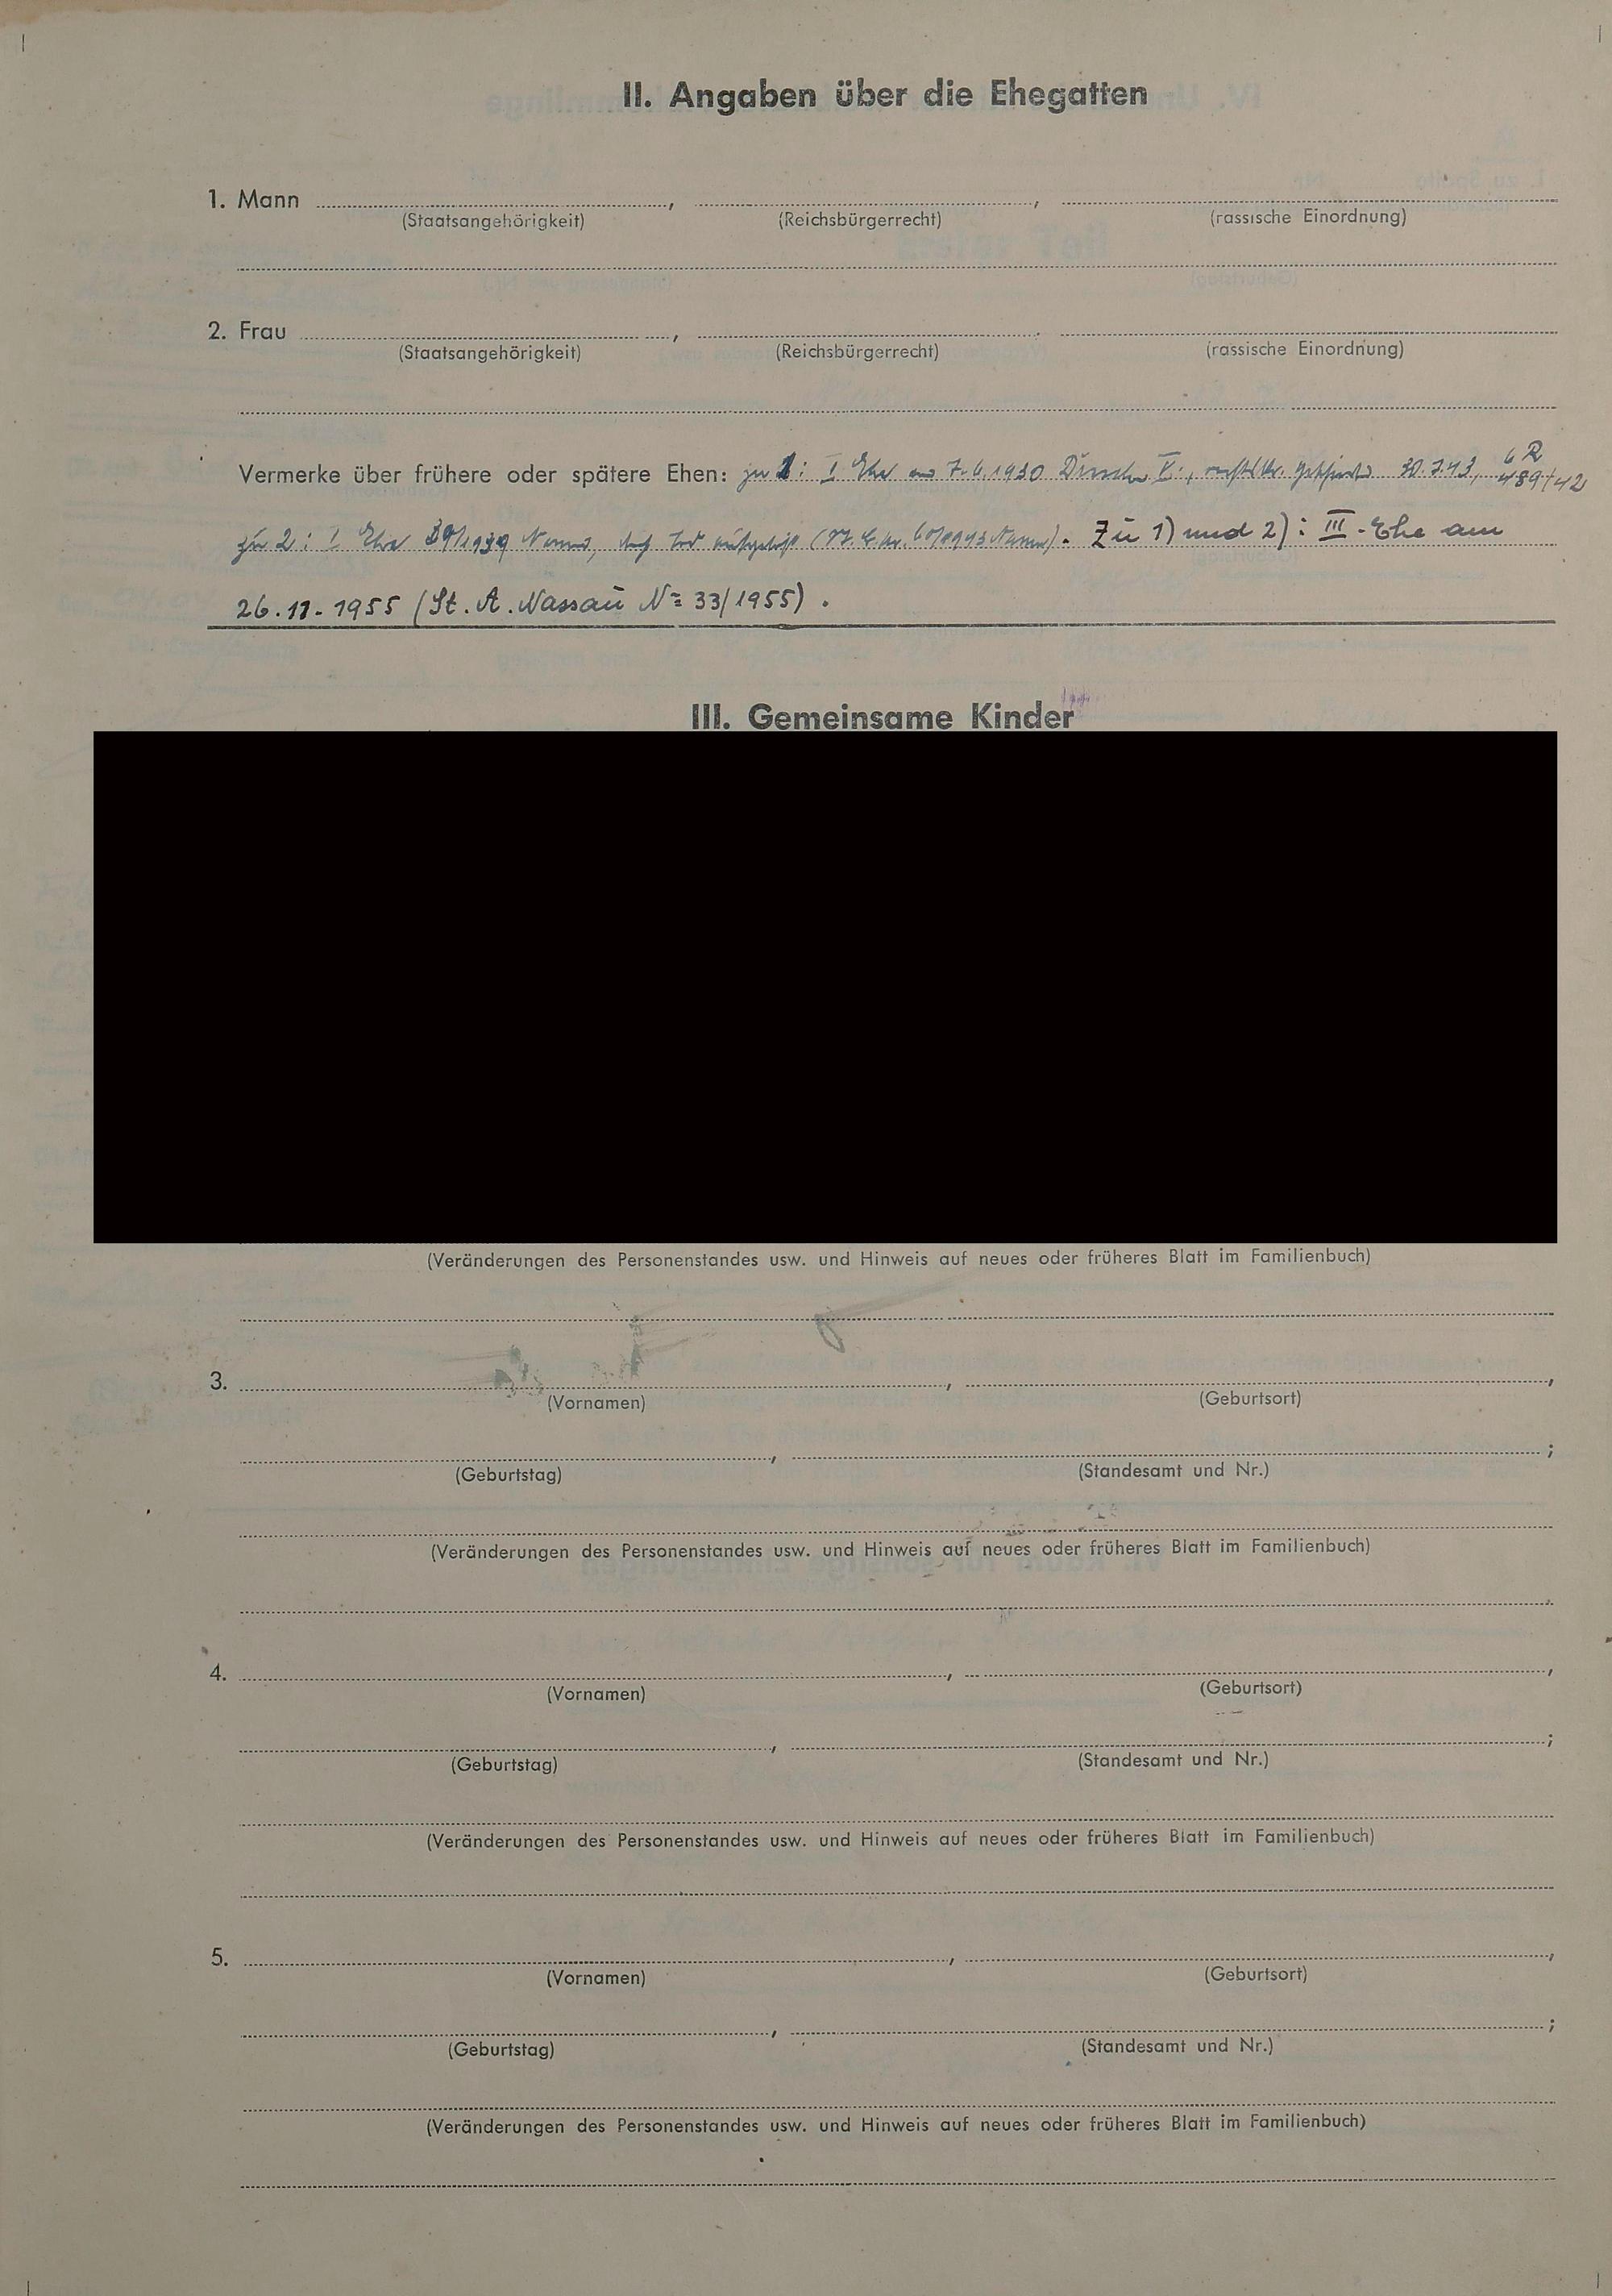 II. Angaben über die Ehegatten
1. Mann , ,
(Staatsangehörigkeit) (Reichsbürgerrecht) (rassische Einordnung)
2. Frau ,
(Staatsangehörigkeit) (Reichsbürgerrecht) (rassische Einordnung)
Vermerke über frühere oder spätere Ehen: zu 1: I Ehe 7.6.1930 30.7.43, 6 R 489/42
zu 2: I Ehe Zu 1) und 2): III-Ehe am
26.11-1955 (St. A. Nassau № 33/1955).
III. Gemeinsame Kinder
(Veränderungen des Personenstandes usw. und Hinweis auf neues oder früheres Blatt im Familienbuch)
3. , ,
(Vornamen) (Geburtsort)
, ;
(Geburtstag) (Standesamt und Nr.)
(Veränderungen des Personenstandes usw. und Hinweis auf neues oder früheres Blatt im Familienbuch)
4. , ,
(Vornamen) (Geburtsort)
, ;
(Geburtstag) (Standesamt und Nr.)
(Veränderungen des Personenstandes usw. und Hinweis auf neues oder früheres Blatt im Familienbuch)
5. , ,
(Vornamen) (Geburtsort)
, ;
(Geburtstag) (Standesamt und Nr.)
(Veränderungen des Personenstandes usw. und Hinweis auf neues oder früheres Blatt im Familienbuch)